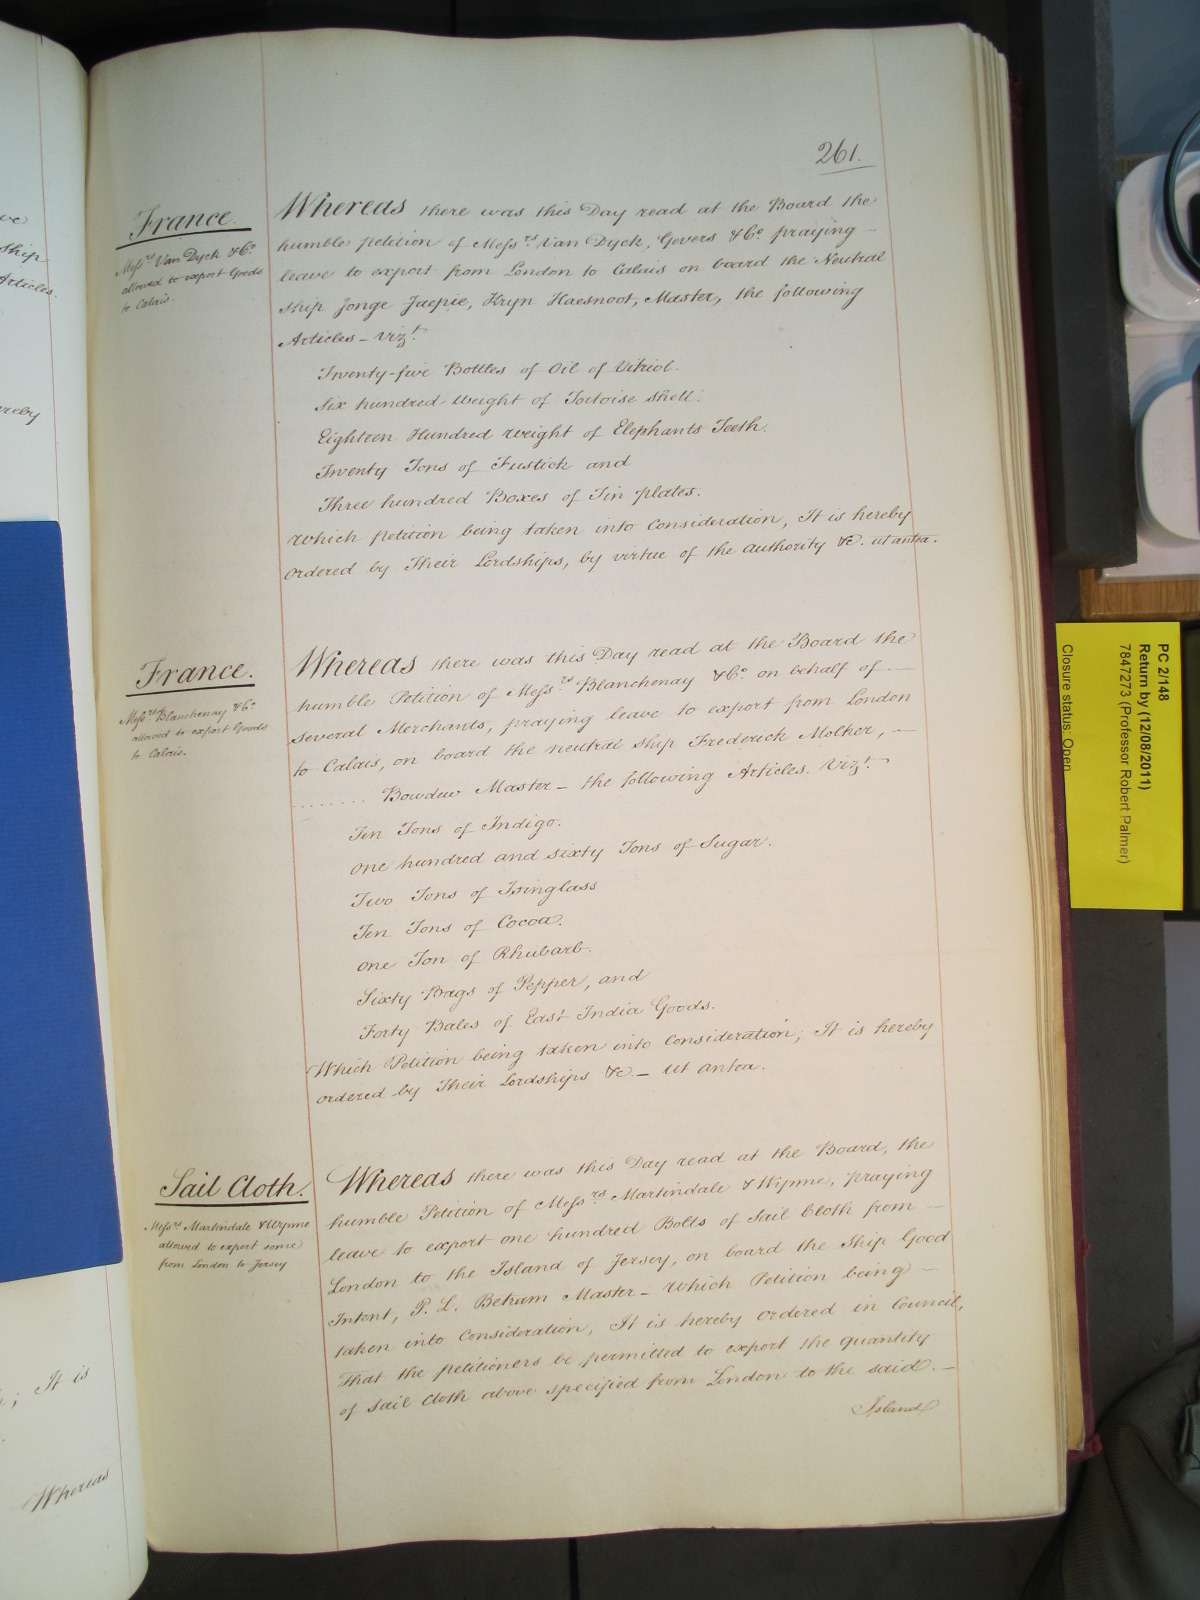 261.
France.
Messrs. Van Dyck & Co.
allowed to export Goods
to Calais.
Whereas there was this Day read at the Board the
humble petition of Messrs. Van Dyck, Gevers & Co. praying —
leave to export from London to Calais on board the Neutral
ship Jonge Jaepie, Kryn Haesnoot, Master, the following
Articles – vizt.
Twenty-five Bottles of Oil of Vitriol.
Six hundred weight of Tortoise shell.
Eighteen Hundred weight of Elephants Teeth.
Twenty Tons of Fustick and
Three hundred Boxes of Tin plates.
which petition being taken into Consideration, It is hereby
ordered by Their Lordships, by virtue of the authority &c. ut antea.
France.
Messrs. Blanchenay & Co.
allowed to export Goods
to Calais.
Whereas there was this Day read at the Board the
humble Petition of Messrs. Blanchenay & Co. on behalf of —
several Merchants, praying leave to export from London
to Calais, on board the neutral ship Frederick Molker, —
........ Bowdew Master – the following Articles. Vizt.
Ten Tons of Indigo.
One hundred and sixty Tons of Sugar.
Two Tons of Isinglass
Ten Tons of Cocoa.
One Ton of Rhubarb.
Sixty Bags of Pepper, and
Forty Bales of East India Goods.
Which Petition being taken into Consideration, It is hereby
ordered by Their Lordships &c. – ut antea.
Sail Cloth.
Messrs. Martindale & Wynne
allowed to export some
from London to Jersey
Whereas there was this Day read at the Board, the
humble Petition of Messrs. Martindale & Wynne, praying
leave to export one hundred Bolts of Sail Cloth from —
London to the Island of Jersey, on board the Ship Good
Intent, P. L. Beham Master – which Petition being —
taken into Consideration, It is hereby ordered in Council,
That the petitioners be permitted to export the quantity
of Sail Cloth above specified from London to the said. —
Island
ship
Articles.
It is
Whereas
PC 2/148
Return by (12/08/2011)
7847273 (Professor Robert Palmer)
Closure status: Open